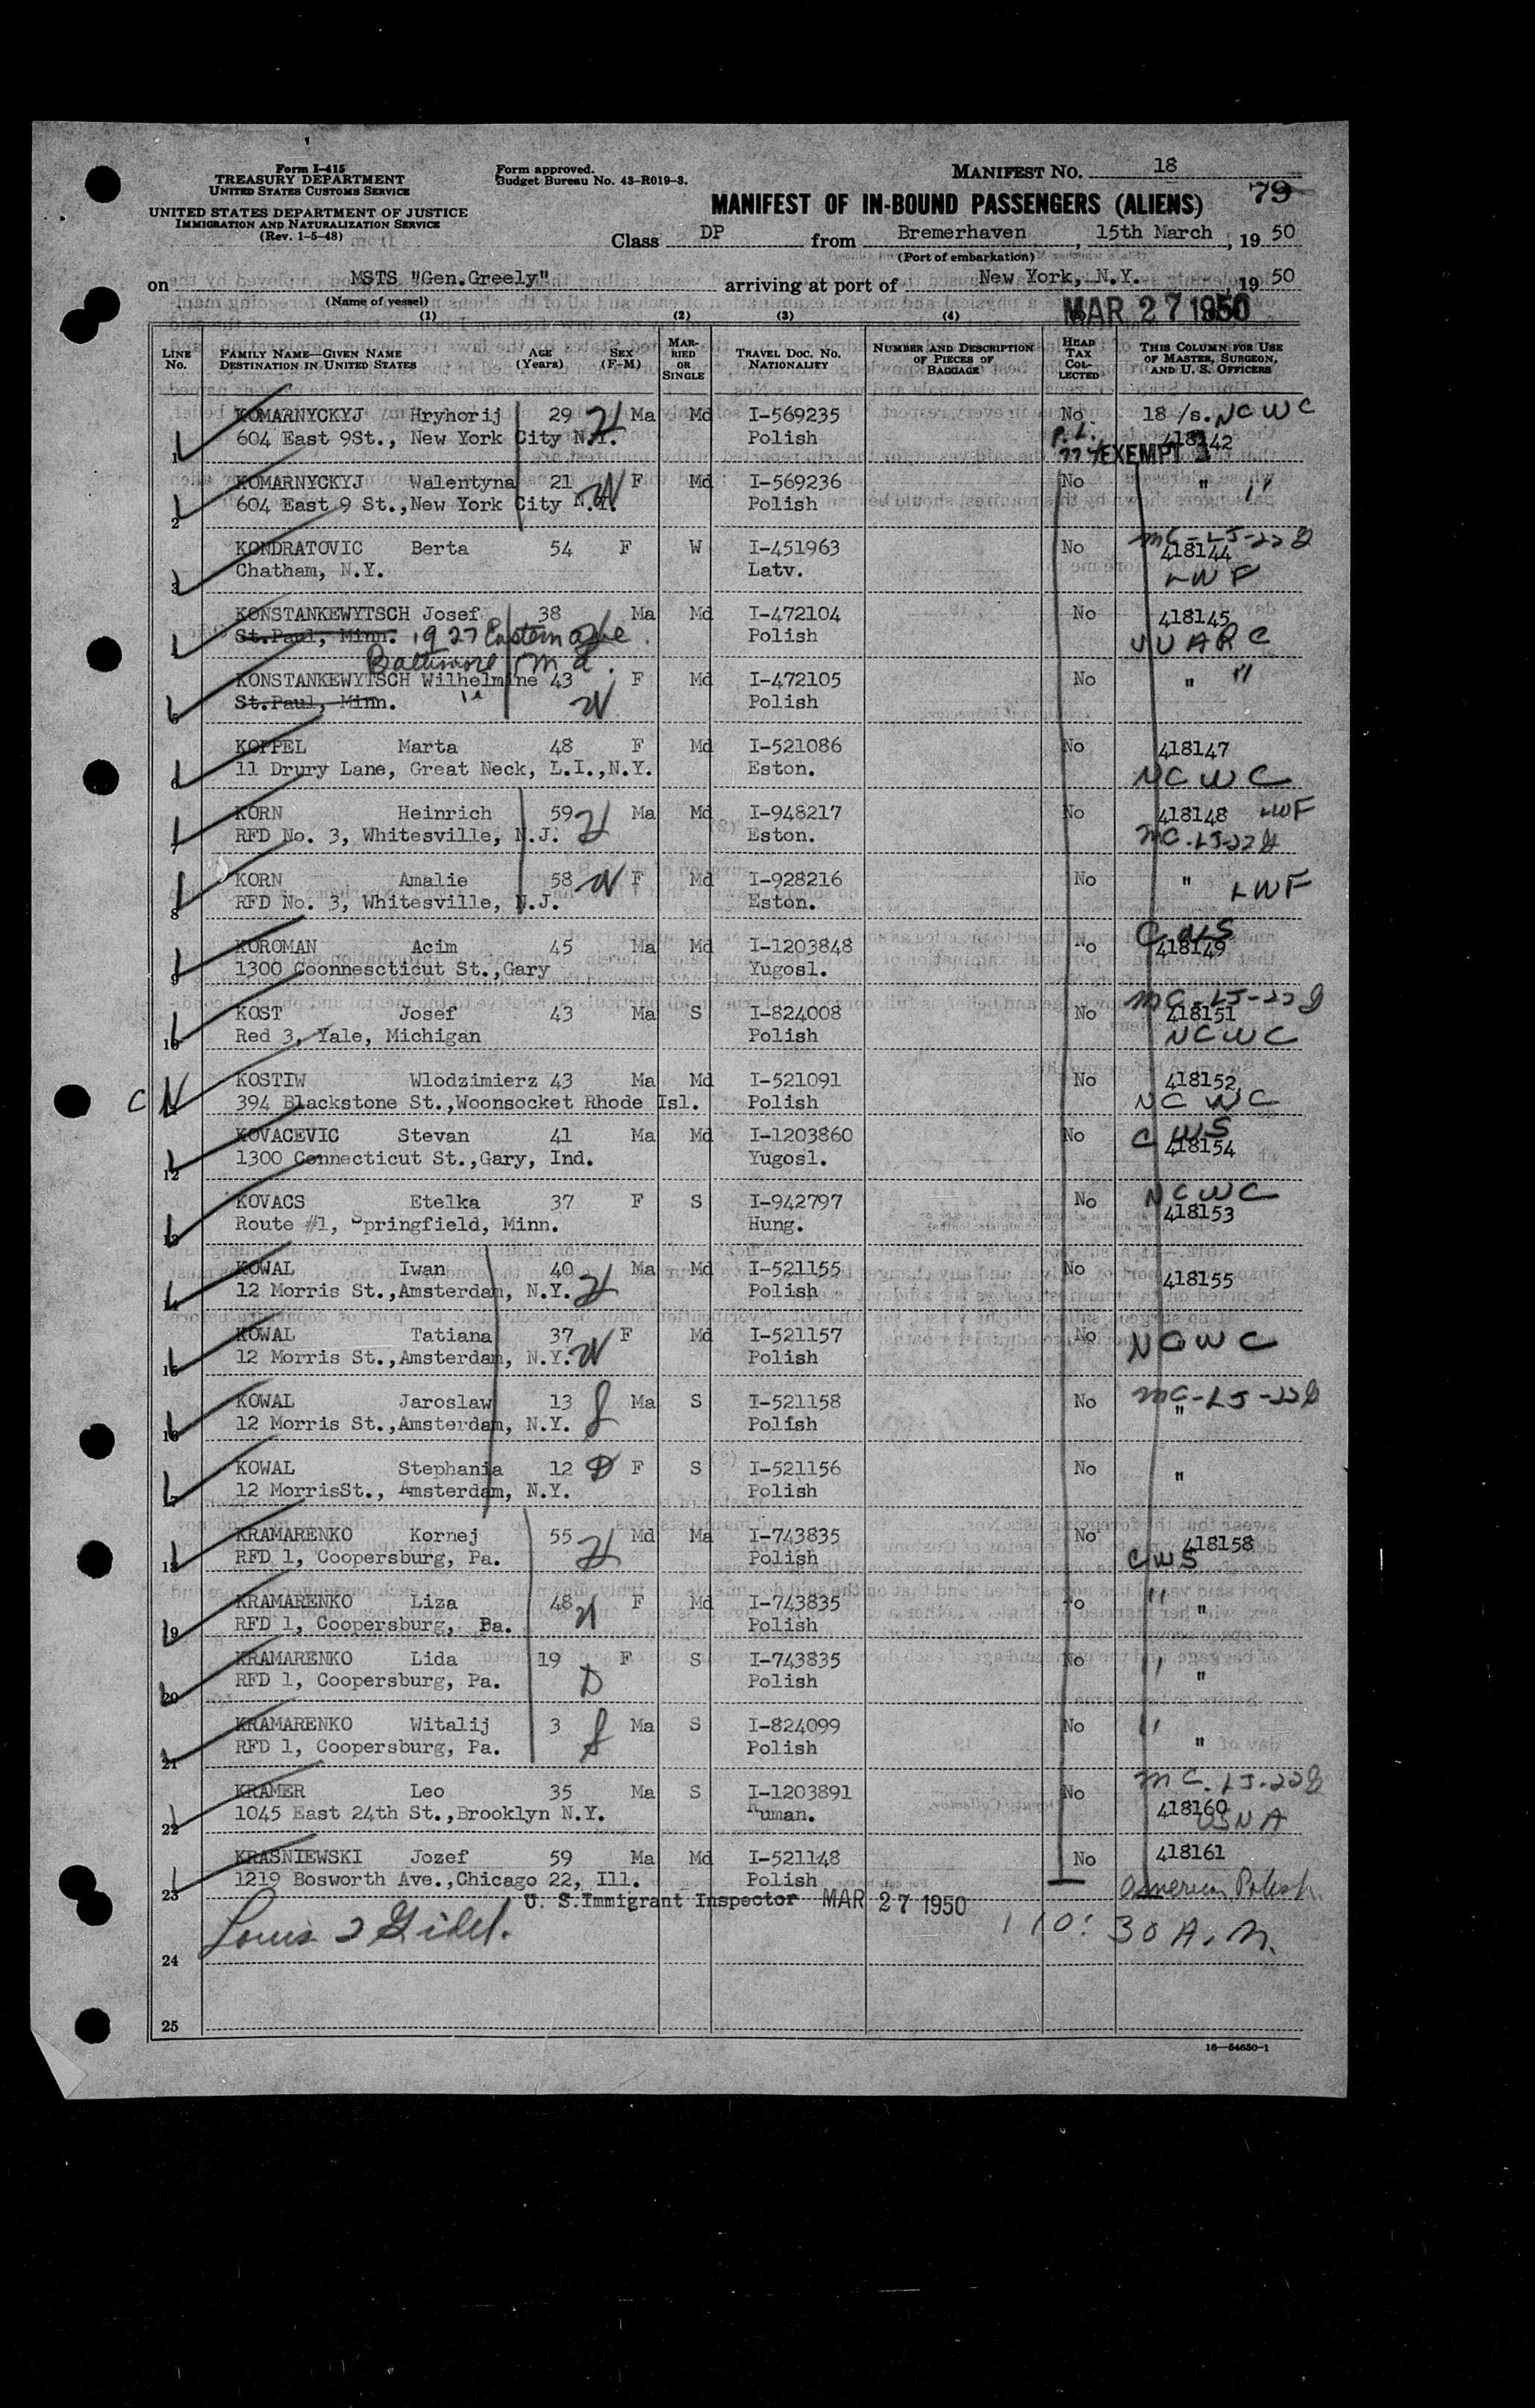 Form I-415
TREASURY DEPARTMENT
UNITED STATES CUSTOMS SERVICE
UNITED STATES DEPARTMENT OF JUSTICE
IMMIGRATION AND NATURALIZATION SERVICE
(Rev. 1-5-48)
Form approved.
Budget Bureau No. 43-R019-3.
MANIFEST NO. 18
79
MANIFEST OF IN-BOUND PASSENGERS (ALIENS)
Class DP from Bremerhaven, 15th March, 19 50
(Port of embarkation)
on MSTS "Gen.Greely" arriving at port of New York, N.Y., 19 50
(Name of vessel)
MAR 27 1950
(1) (2) (3) (4)
LINE No. FAMILY NAME—GIVEN NAME DESTINATION IN UNITED STATES AGE (YEARS) SEX (F-M) MARRIED OR SINGLE TRAVEL DOC. NO. NATIONALITY NUMBER AND DESCRIPTION OF PIECES OF BAGGAGE HEAD TAX COLLECTED THIS COLUMN FOR USE OF MASTER, SURGEON, AND U. S. OFFICERS
1 KOMARNYCKYJ Hryhorij 29 H Ma Md I-569235 No 18 /s. NCWC
604 East 9St., New York City N.Y. Polish EXEMPT 418142
2 KOMARNYCKYJ Walentyna 21 W F Md I-569236 No " "
604 East 9 St.,New York City N.Y. Polish
3 KONDRATOVIC Berta 54 F W I-451963 No MC-LJ-22 418144
Chatham, N.Y. Latv. LWF
4 KONSTANKEWYTSCH Josef 38 Ma Md I-472104 No 418145
St.Paul, Minn. 1927 Eastern ave. Polish UUARC
Baltimore Md.
5 KONSTANKEWYTSCH Wilhelmine 43 F Md I-472105 No " "
St.Paul, Minn. " W Polish
6 KOPPEL Marta 48 F Md I-521086 No 418147
11 Drury Lane, Great Neck, L.I.,N.Y. Eston. NCWC
7 KORN Heinrich 59 H Ma Md I-948217 No 418148 LWF
RFD No. 3, Whitesville, N.J. Eston. MC-LJ-22
8 KORN Amalie 58 W F Md I-928216 No "
RFD No. 3, Whitesville, N.J. Eston. LWF
9 KOROMAN Acim 45 Ma Md I-1203848 No CWS 418149
1300 Coonnescticut St.,Gary Yugosl.
10 KOST Josef 43 Ma S I-824008 No MC-LJ-22 418151
Red 3, Yale, Michigan Polish NCWC
C N KOSTIW Wlodzimierz 43 Ma Md I-521091 No 418152
394 Blackstone St.,Woonsocket Rhode Isl. Polish NCWC
12 KOVACEVIC Stevan 41 Ma Md I-1203860 No CWS 418154
1300 Connecticut St.,Gary, Ind. Yugosl.
13 KOVACS Etelka 37 F S I-942797 No NCWC 418153
Route #1, Springfield, Minn. Hung.
14 KOWAL Iwan 40 Ma Md I-521155 No 418155
12 Morris St.,Amsterdam, N.Y. H Polish
15 KOWAL Tatiana 37 F Md I-521157 No NCWC
12 Morris St.,Amsterdam, N.Y. W Polish
16 KOWAL Jaroslaw 13 S Ma S I-521158 No MC-LJ-22 "
12 Morris St.,Amsterdam, N.Y. Polish
17 KOWAL Stephania 12 D F S I-521156 No "
12 MorrisSt., Amsterdam, N.Y. Polish
18 KRAMARENKO Kornej 55 H Md Ma I-743835 No 418158
RFD 1, Coopersburg, Pa. Polish CWS
19 KRAMARENKO Liza 48 W F Md I-743835 No " "
RFD 1, Coopersburg, Pa. Polish
20 KRAMARENKO Lida 19 F S I-743835 No " "
RFD 1, Coopersburg, Pa. D Polish
21 KRAMARENKO Witalij 3 S Ma S I-824099 No " "
RFD 1, Coopersburg, Pa. Polish
22 KRAMER Leo 35 Ma S I-1203891 No MC-LJ-22
1045 East 24th St.,Brooklyn N.Y. Ruman. 418160 USNA
23 KRASNIEWSKI Jozef 59 Ma Md I-521148 No 418161
1219 Bosworth Ave.,Chicago 22, Ill. Polish American Polish
U. S. Immigrant Inspector MAR 27 1950
Louis 10:30 A.M.
24
25
16—54650-1